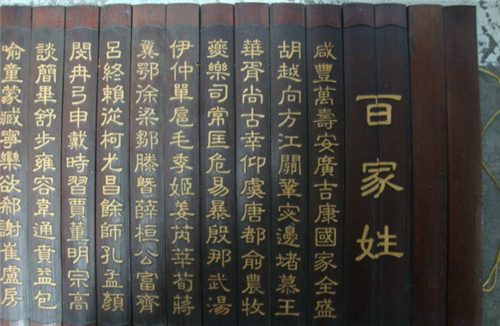 百家姓
咸豐萬壽安廣吉康國家全盛
胡越向方江關鞏邊堵慕王
華胥尚古幸仰虞唐都俞農牧
夔樂司常匡危易暴殷那武湯
伊仲單扈毛季姬姜芮莘荀蔣
冀鄂徐梁鄒滕曁薛桓公富齊
呂終賴從柯尤昌餘師孔孟顏
閔冉弓申戴時習賈董明宗高
談簡畢舒步雍容韋通貢益包
喻童蒙臧寧欒欲郗謝崔盧房